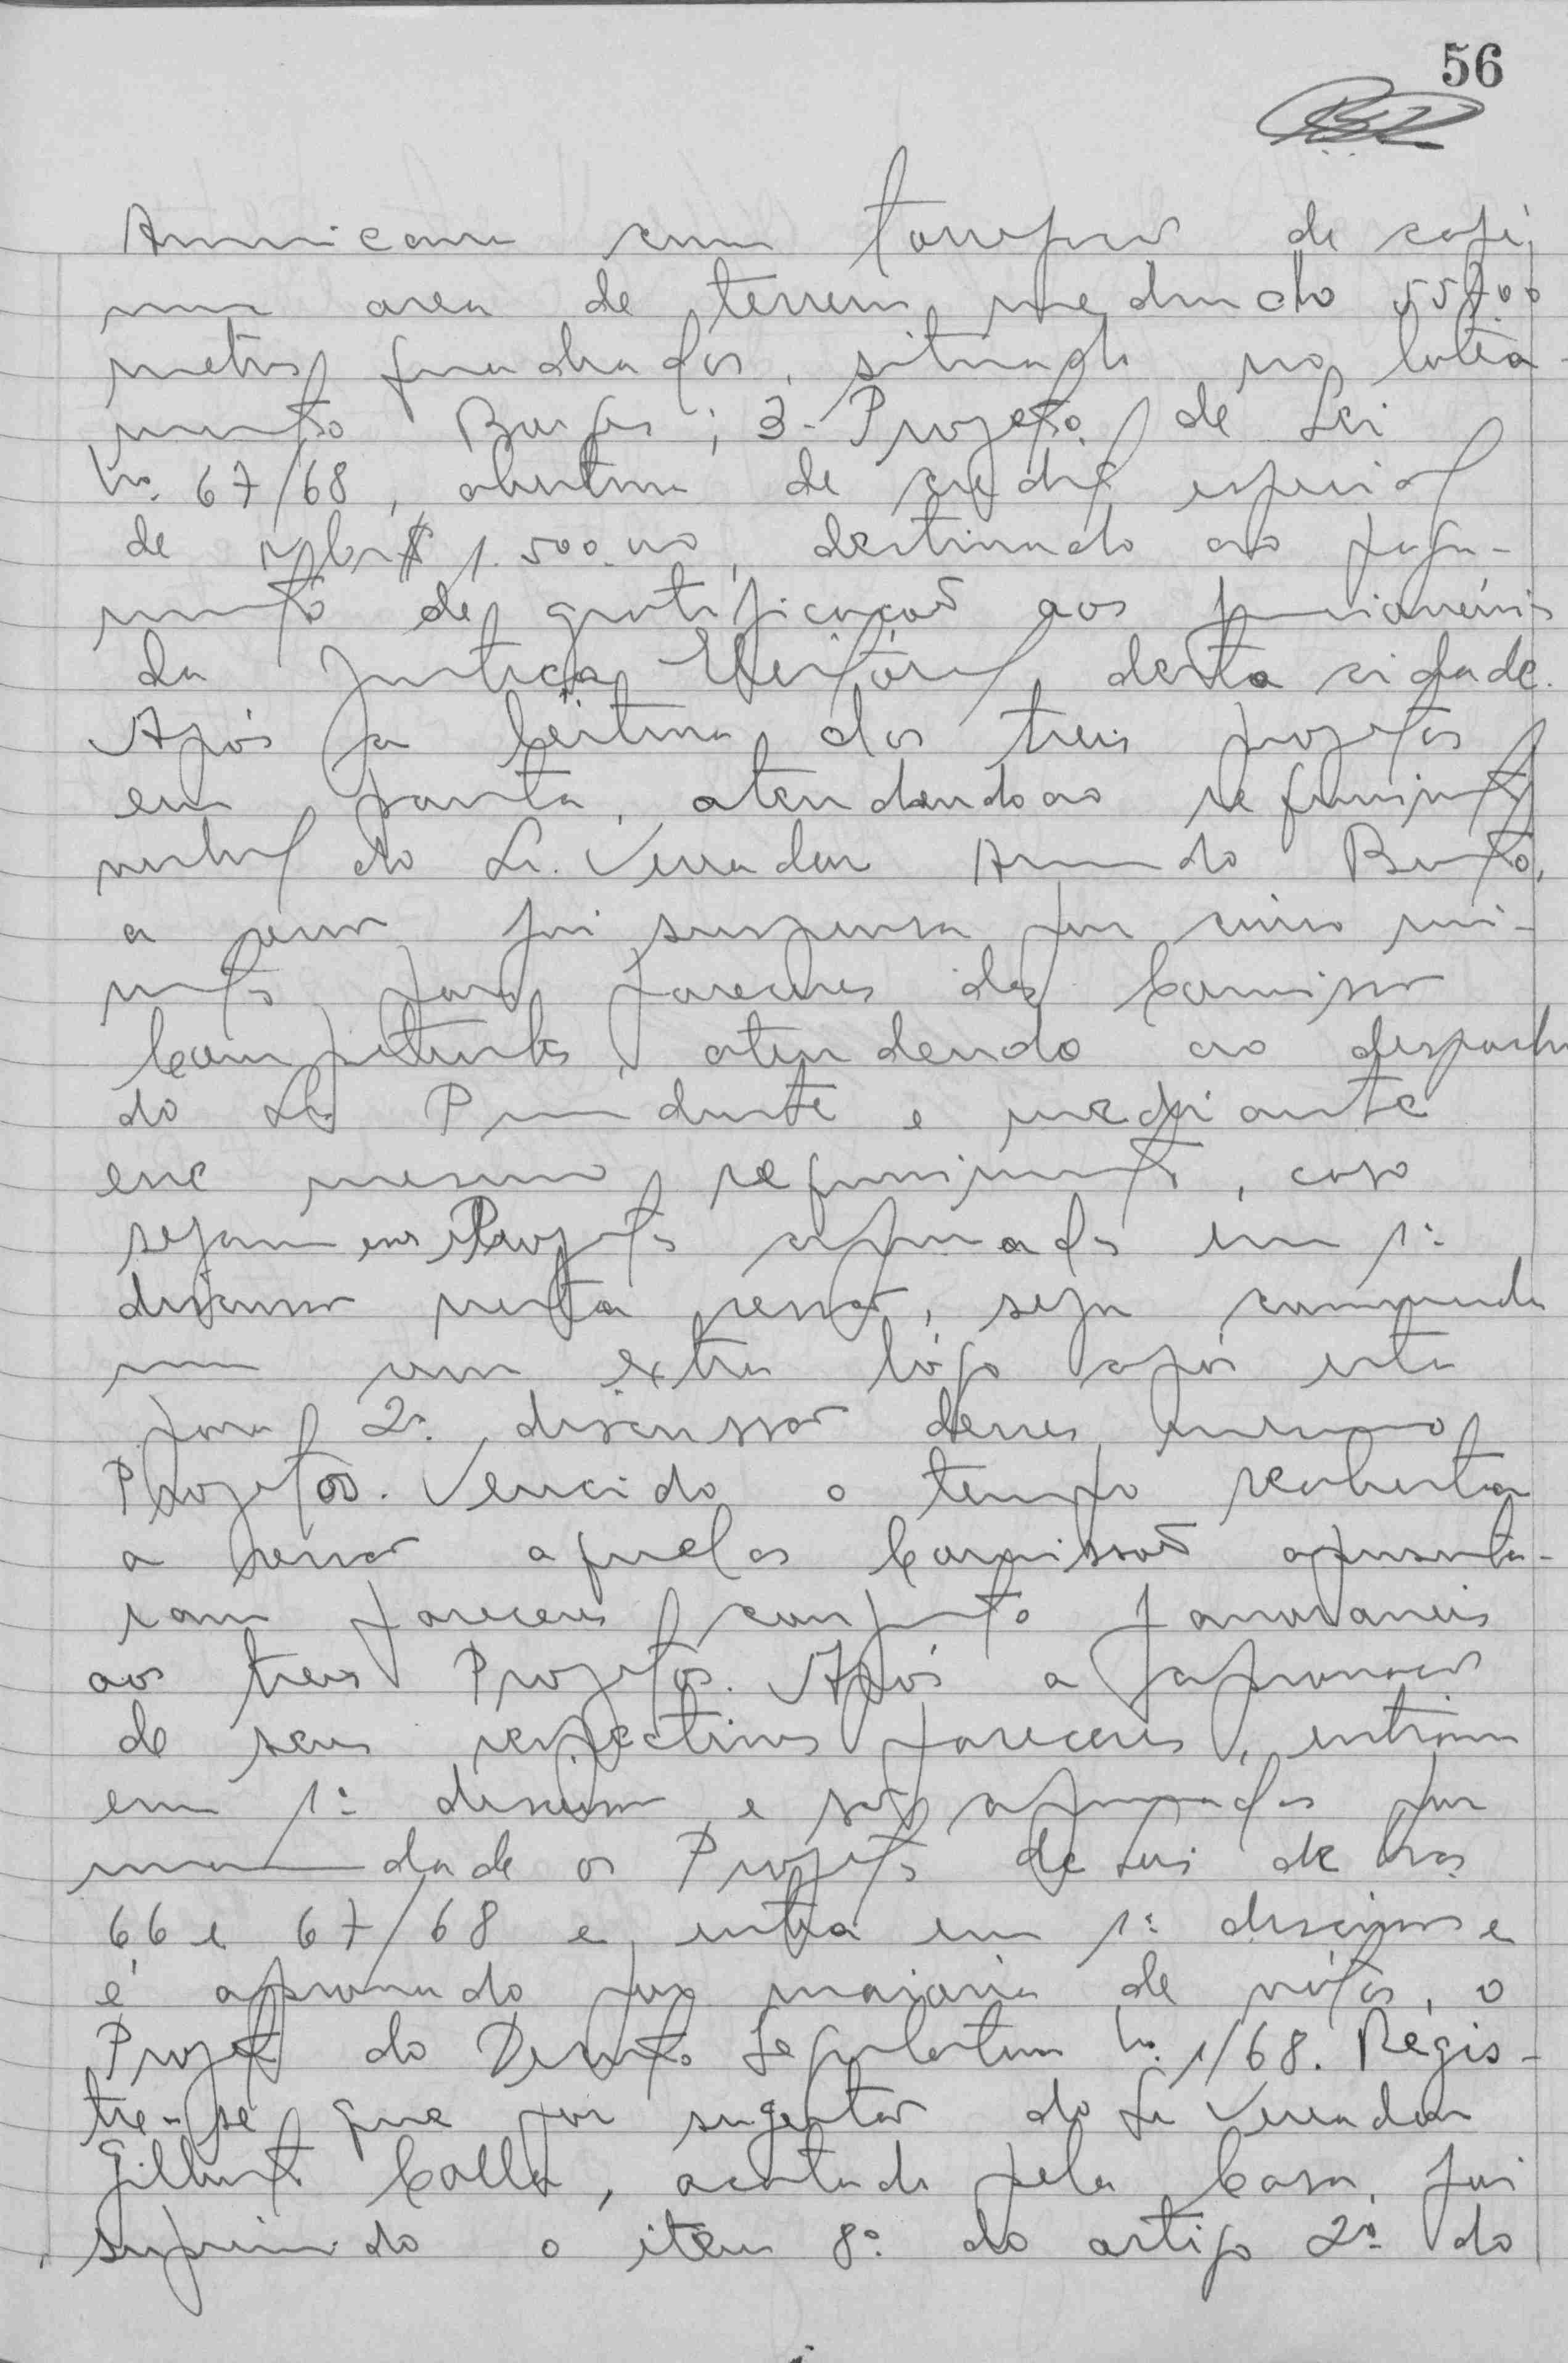 56
Americana com torrefação de café,
uma area de terreno medindo
metros quadrados, situado no lotea-
mento ; 3- Projeto de Lei
nº. 67/68, abertura de credito especial
de NCr$ 1.500.00, destinado ao paga-
mento de gratificação aos funcionários
da Justiça Eleitoral desta cidade.
Após a leitura dos treis projetos
em pauta, atendendo ao requerimento
verbal do Sr. Vereador Bento,
a sessão foi suspensa por cinco mi-
nutos para pareceres das Comissões
Competentes, atendendo ao despacho
do Sr. Presidente e mediante
esse mesmo requerimento, caso
sejam esses Projetos aprovados em 1ª
discussão nesta sessão, seja convocada
uma extra lógo após esta
para 2ª discussão desses mesmos
Projetos. Vencido o tempo reaberta
a sessão aquelas Comissões apresenta-
ram pareceres conjunto favoraveis
aos treis Projetos. Após a aprovação
de seus respectivos pareceres, entram
em 1ª discussão e são aprovados por
unanimidade os Projetos de Lei de nos
66 e 67/68 e entra em 1ª discussão e
é aprovado por maioria de vótos, o
Projeto de Decreto Legislativo nº. 1/68. Regis-
tre-se que por sugestão do Sr Vereador
Gilberto Colla, acatada pela Casa, foi
suprimido o item 8º do artigo 2º do